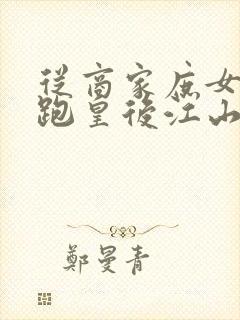 從商家庶女
跑皇後江山
鄭曼青